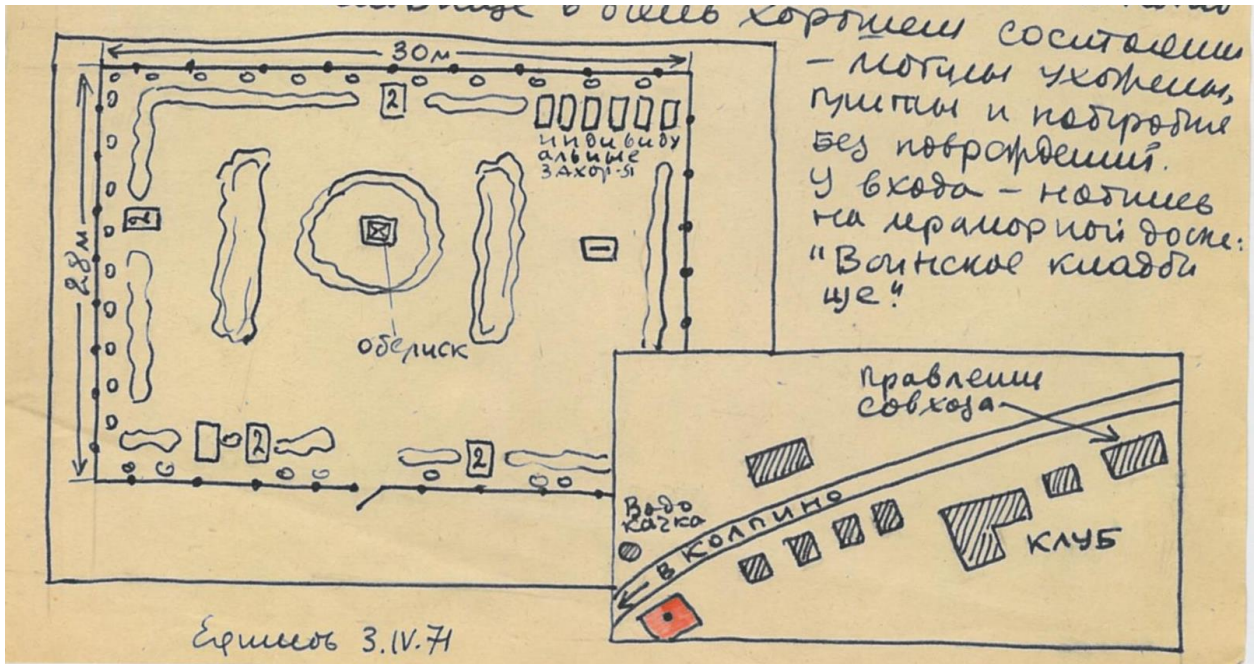 в очень хорошем состоянии
- могилы ухожены,
плиты и надгробия
без повреждений.
У входа - надпись
на мраморной доске:
"Воинское кладби
ще".
30 м
28 м
2
индивиду
альные
захор-я
2
1
обелиск
2
2
правление
совхоза
Водо
качка
В КОЛПИНО
КЛУБ
3.IV.71